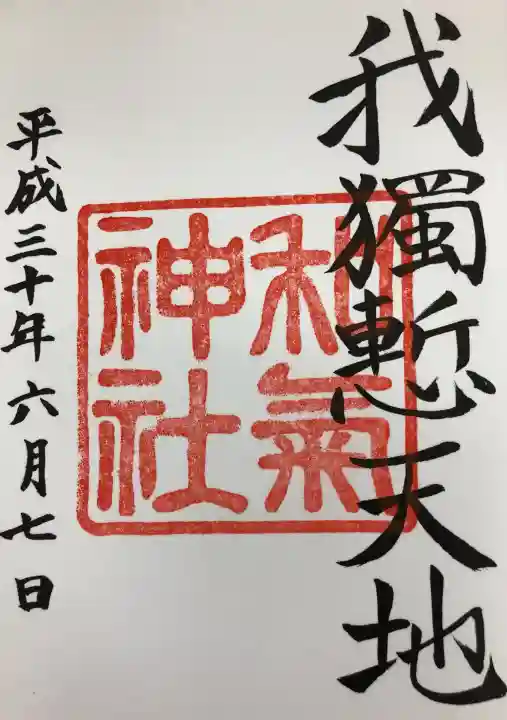 我獨慙天地
和氣
神社
平成三十年六月七日